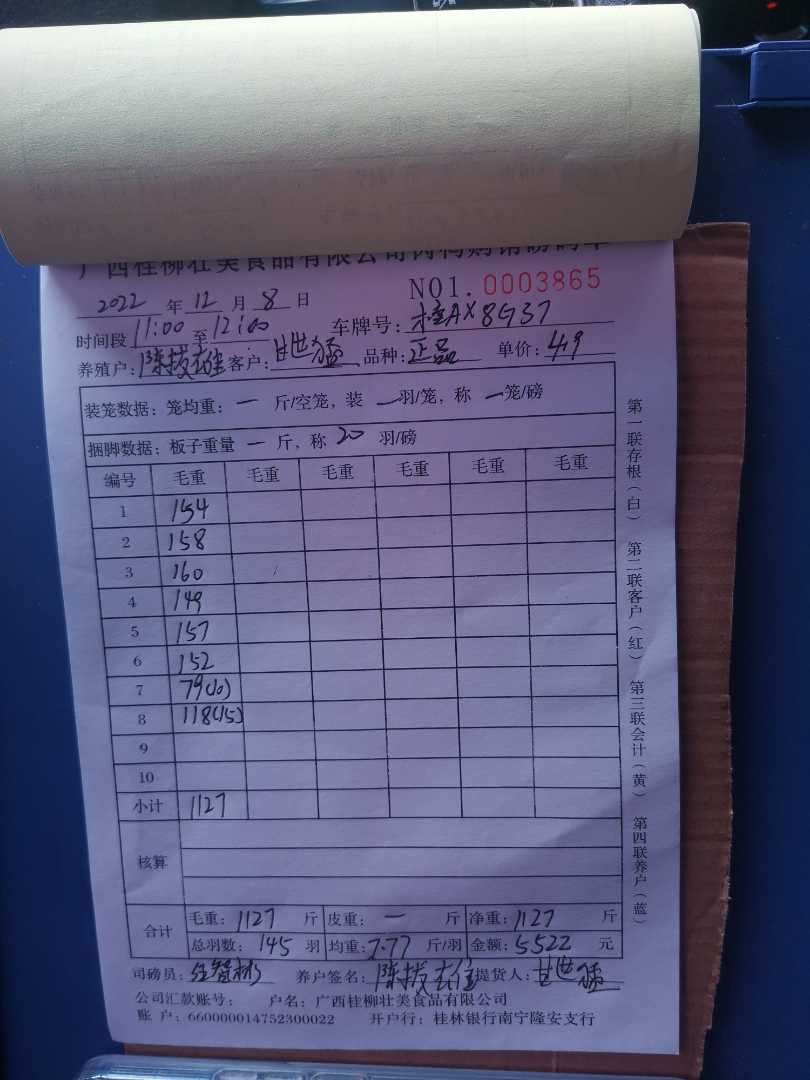 广西桂柳壮美食品有限公司肉鸭购销磅码单
2022 年 12 月 8 日 NO1. 0003865
时间段 11:00 至 12:00 车牌号: 桂AX8G37
养殖户: 客户: 甘世猛 品种: 正品 单价: 4.9
装笼数据: 笼均重: 一 斤/空笼, 装 一 羽/笼, 称 一 笼/磅
捆脚数据: 板子重量 一 斤, 称 20 羽/磅
编号 毛重 毛重 毛重 毛重 毛重 毛重
1 154
2 158
3 160
4 149
5 157
6 152
7 79(10)
8 118(15)
9
10
小计 1127
核算
合计 毛重: 1127 斤 皮重: 一 斤 净重: 1127 斤
总羽数: 145 羽 均重: 7.77 斤/羽 金额: 5522 元
司磅员: 养户签名: 提货人: 甘世猛
公司汇款账号: 户名: 广西桂柳壮美食品有限公司
账 户: 660000014752300022 开户行: 桂林银行南宁隆安支行
第一联存根(白) 第二联客户(红) 第三联会计(黄) 第四联养户(蓝)